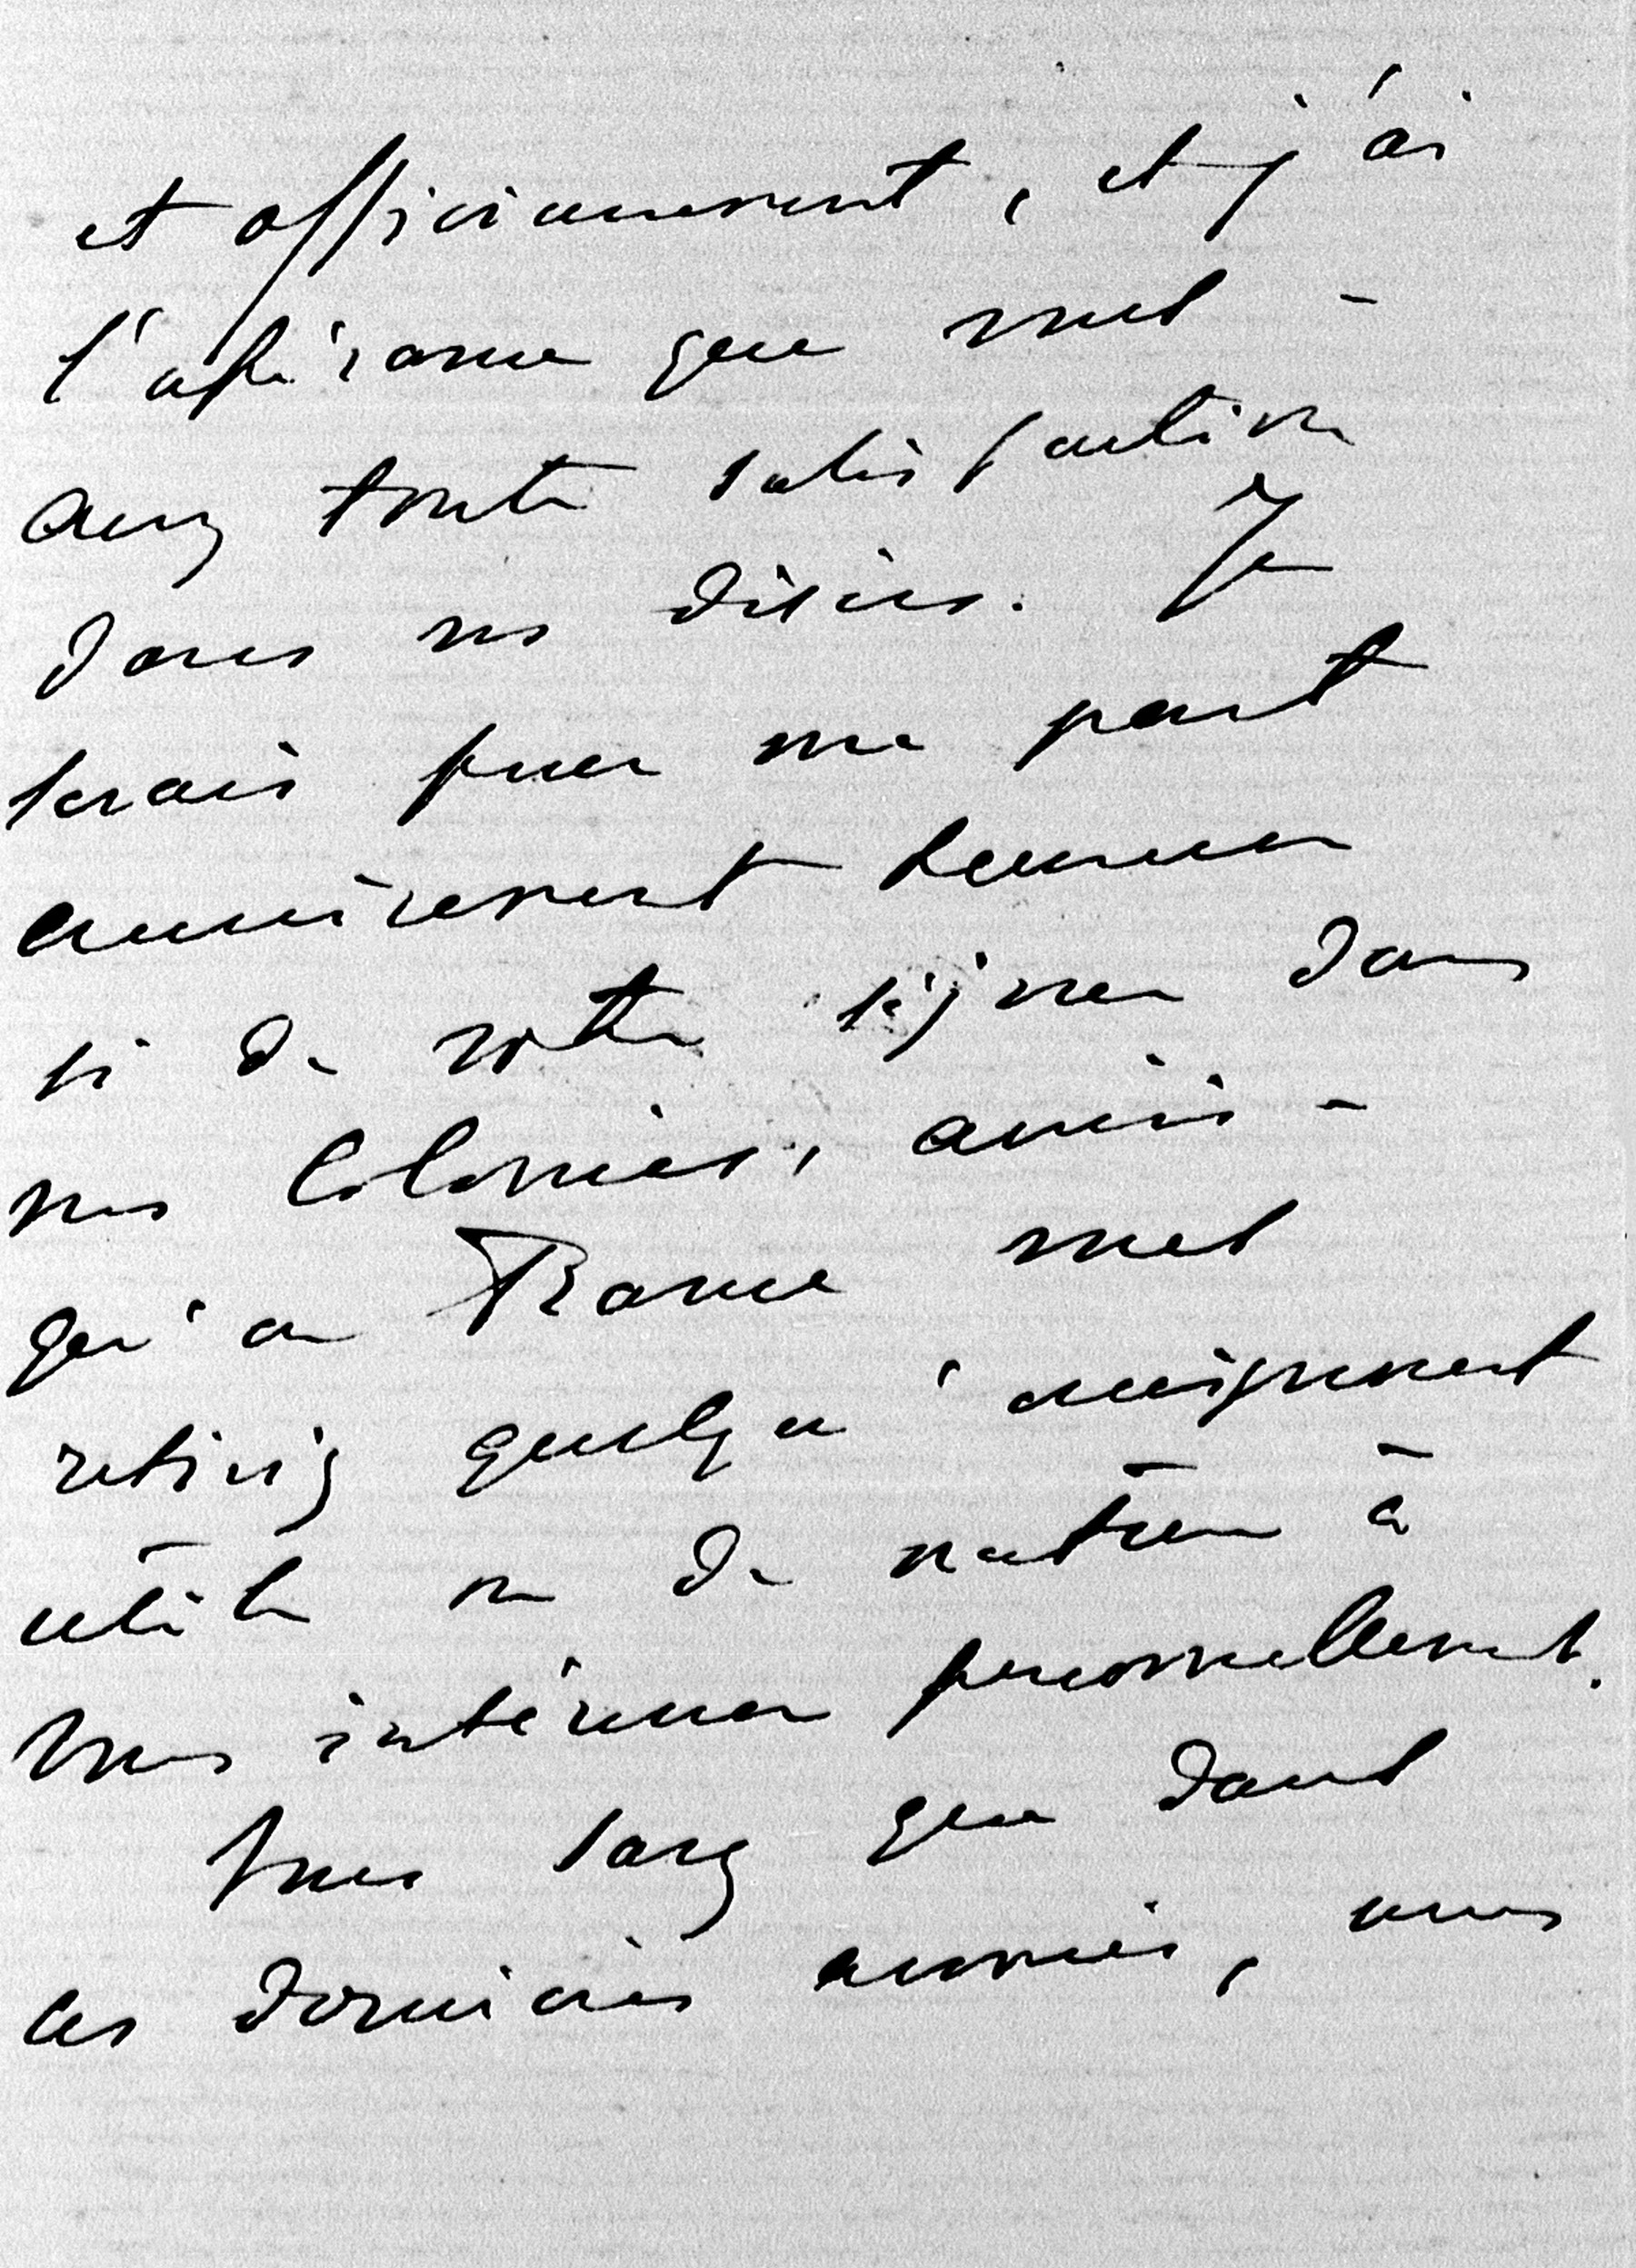 et officieusement, et j'ai
l'espérance que vous
aurez toute satisfaction
dans vos désirs. Je
serais pour ma part
heureux
si de votre séjour dans
nos Colonies, aussi
qu'en France vous
retiriez quelqu'enseignement
utile ou de nature à
vous intéresser personnellement.
Vous savez que dans
ces dernières années, nous